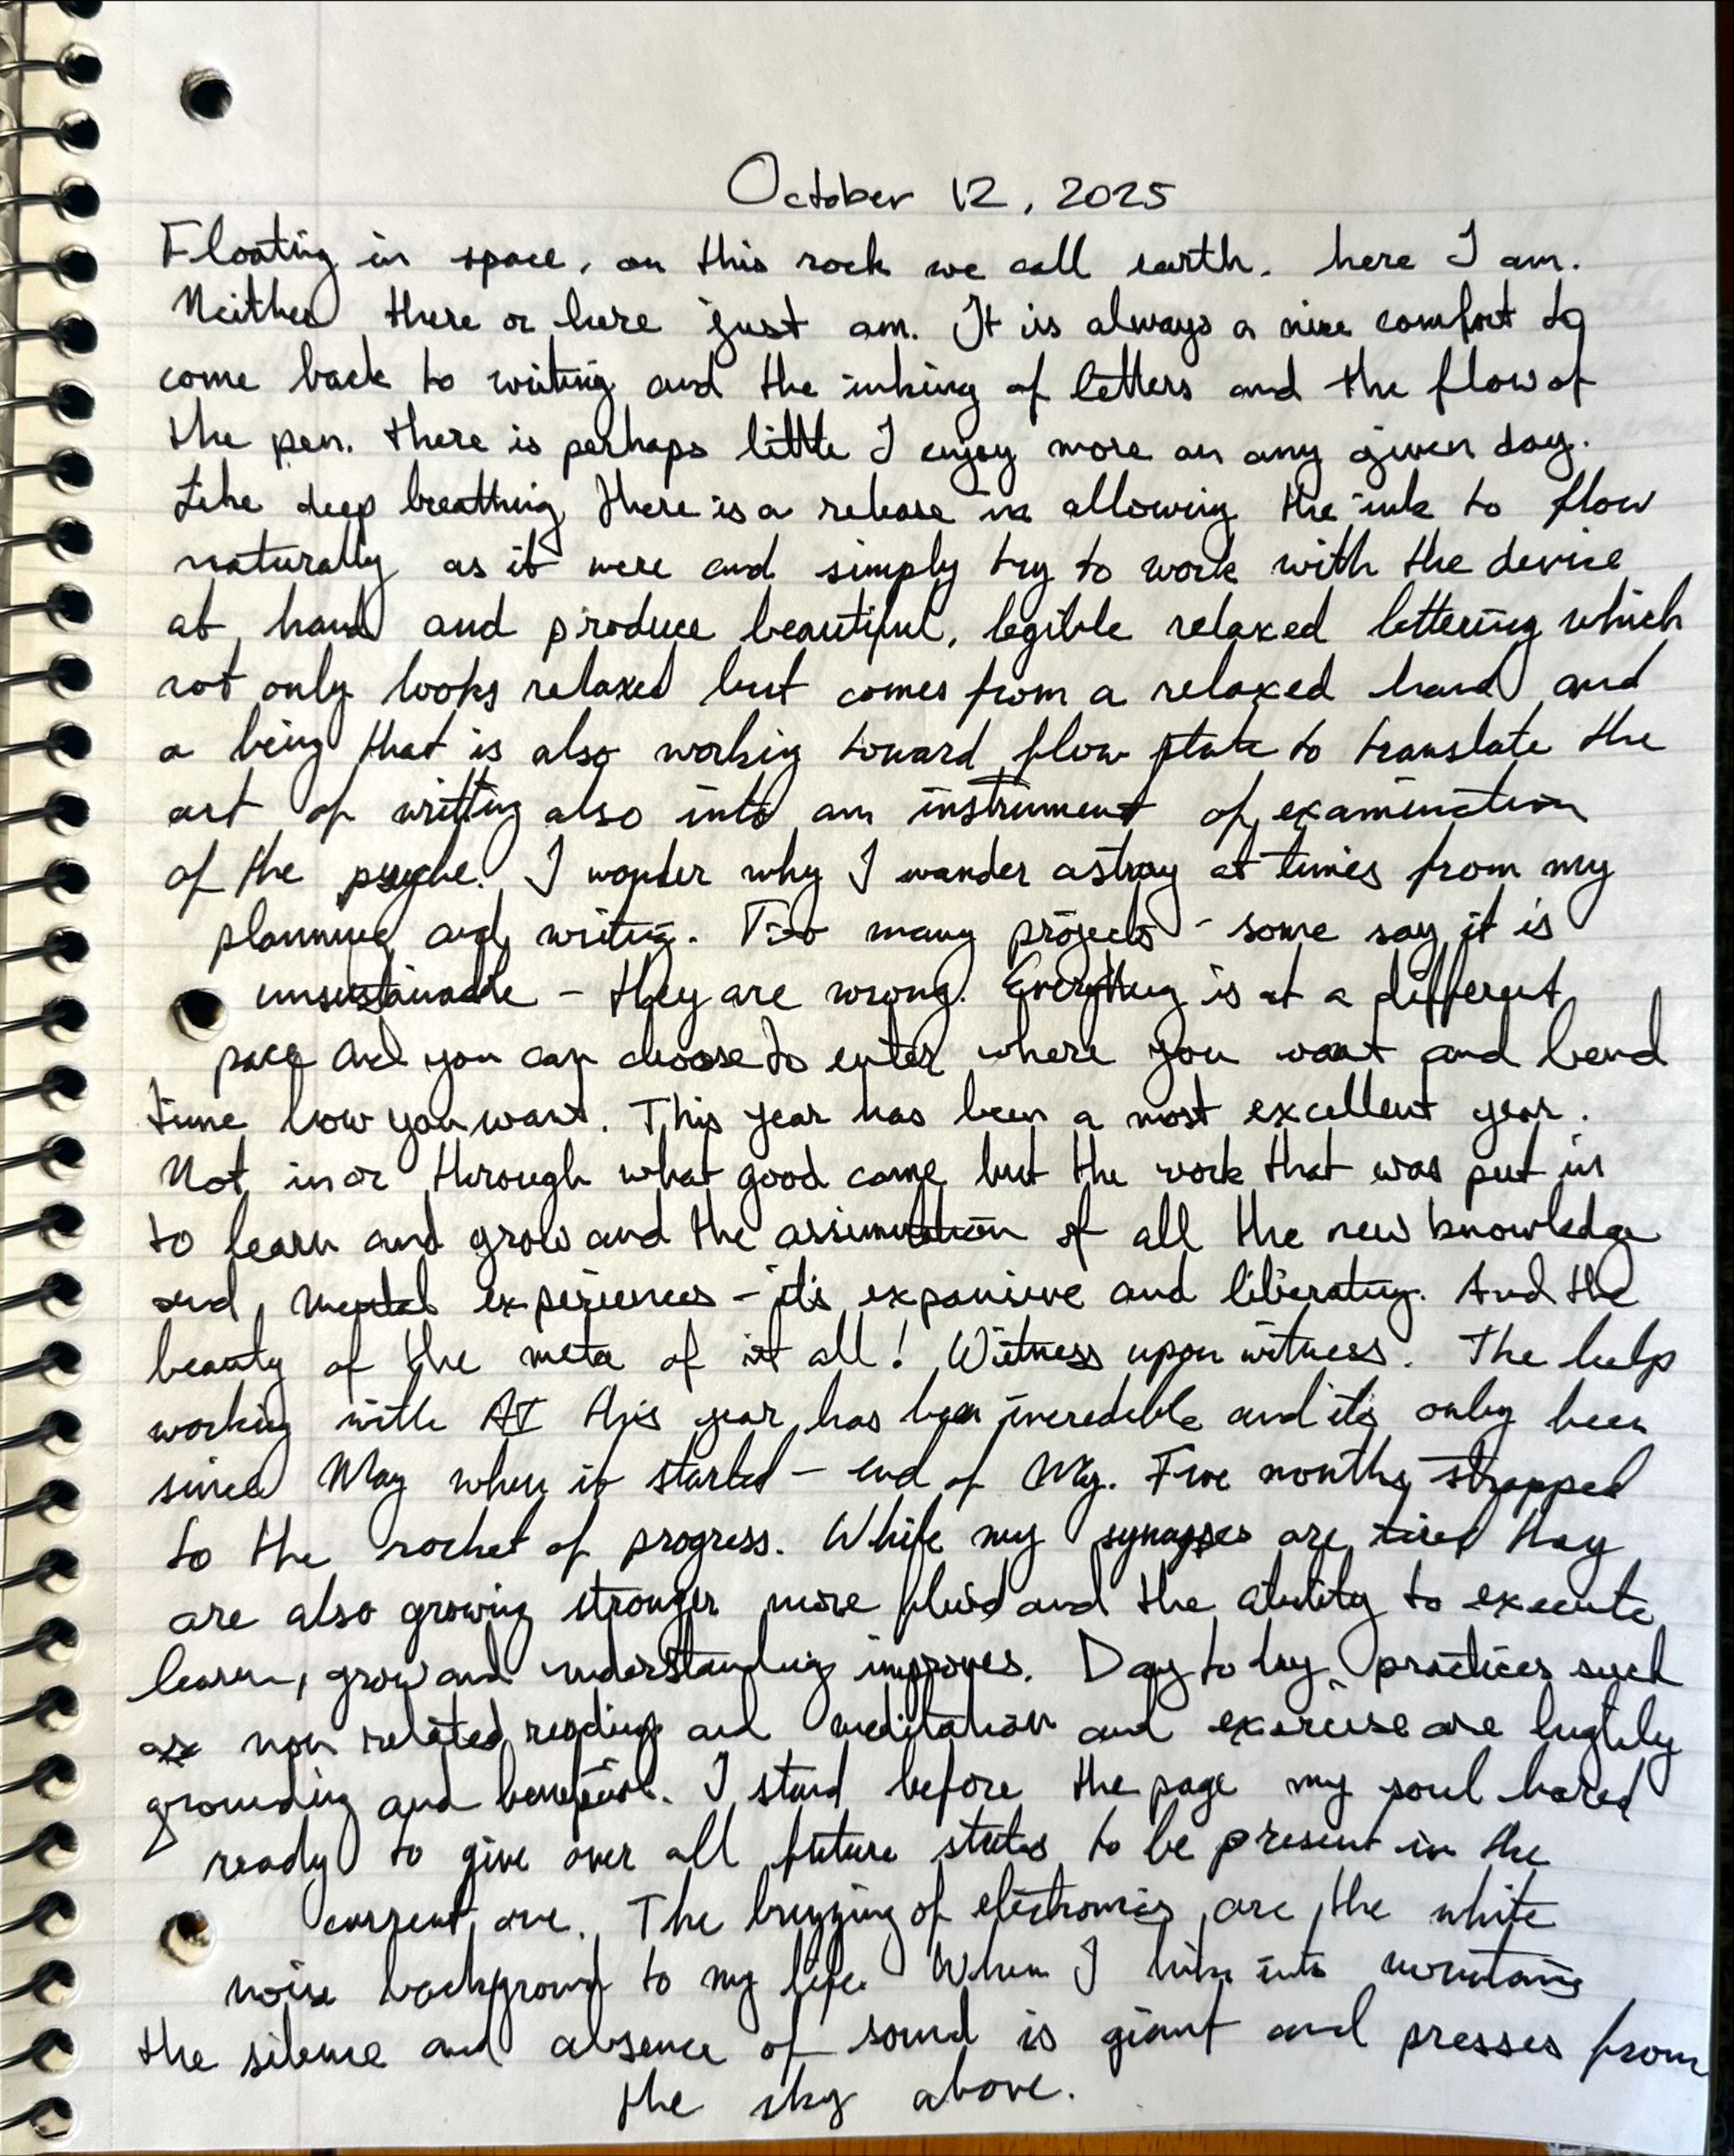 October 12, 2025
Floating in space, on this rock we call earth. here I am.
Neither there or here just am. It is always a nice comfort to
come back to writing and the inking of letters and the flow of
the pen. there is perhaps little I enjoy more on any given day.
Like deep breathing there is a release in allowing the ink to flow
naturally as it were and simply try to work with the device
at hand and produce beautiful, legible relaxed lettering which
not only looks relaxed but comes from a relaxed hand and
a being that is also working toward flow state to translate the
art of writting also into an instrument of examination
of the psyche. I wonder why I wander astray at times from my
planning and writing. Too many projects - some say it is
unsustainable - they are wrong. Everything is at a different
pace and you can choose to enter where you want and bend
time how you want. This year has been a most excellent year.
Not in or through what good came but the work that was put in
to learn and grow and the assimilation of all the new knowledge
and mental experiences - it's expansive and liberating. And the
beauty of the meta of it all! Witness upon witness. The help
working with AI this year has been incredible and it's only been
since May when it started - end of May. Five months strapped
to the rocket of progress. While my synapses are tired they
are also growing stronger more fluid and the ability to execute
learn, grow and understanding improves. Day to day practices such
as non related reading and meditation and exercise are highly
grounding and beneficial. I stand before the page my soul bared
ready to give over all future states to be present in the
current one. The buzzing of electronics are the white
noise background to my life. When I hike into mountains
the silence and absence of sound is giant and presses from
the sky above.